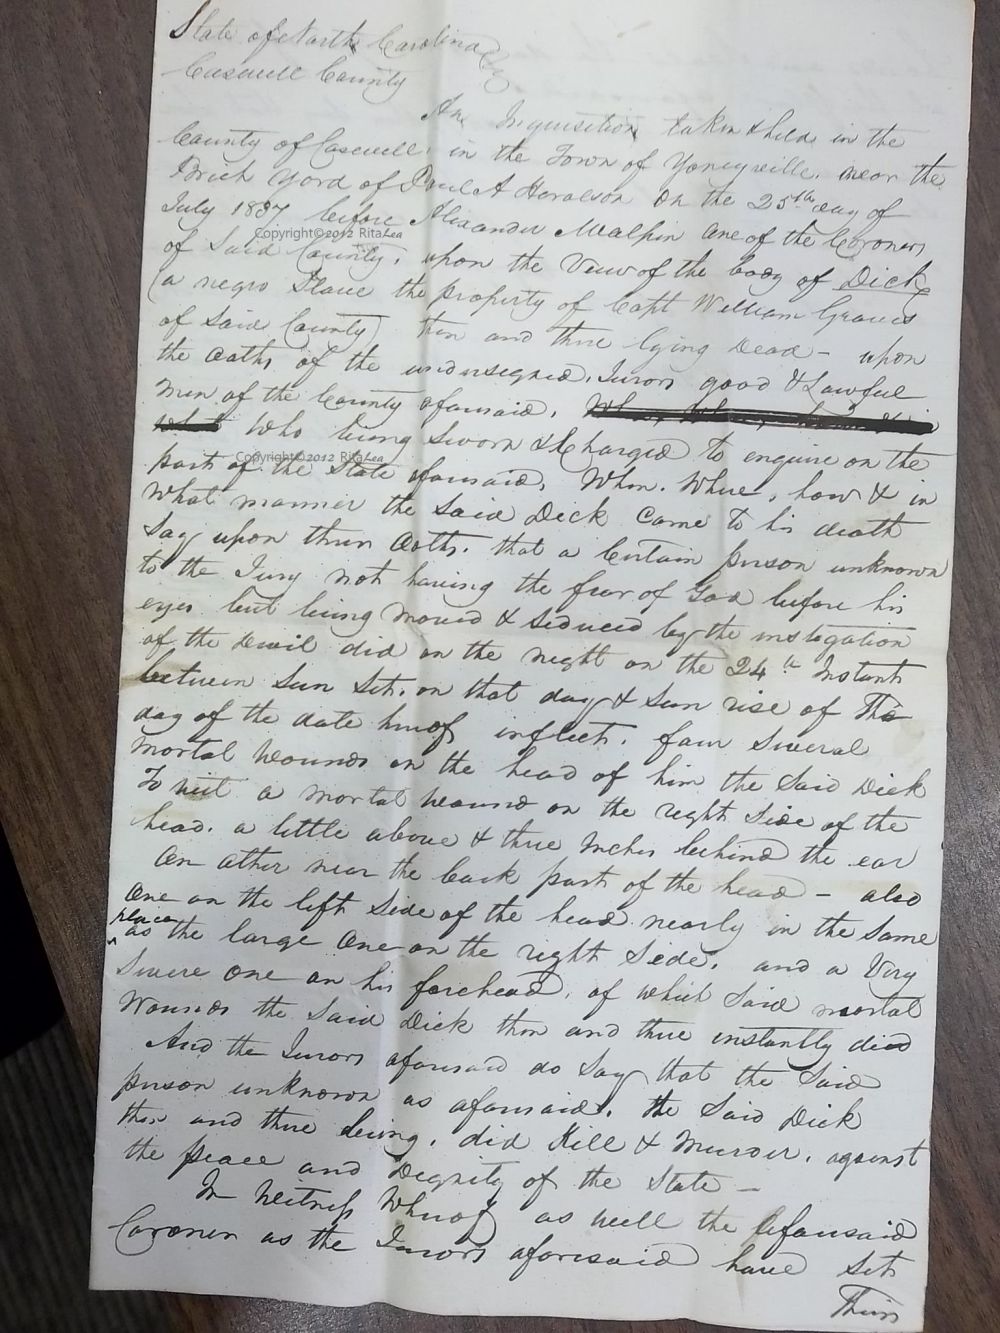 State of North Carolina
Caswell County
An Inquisition taken & held in the
County of Caswell, in the Town of Yanceyville, near the
Brick Yard of Paul A Haralson on the 25th day of
July 1837 before Alexander McAlpin one of the Coroners
Copyright©2012 RitaLea
of Said County, upon the View of the body of Dick
(a negro Slave the property of Capt William Graves
of Said County) then and there lying Dead - upon
the Oaths of the undersigned, Jurors good & Lawful
men of the County aforesaid,
Who being Sworn & Charged to enquire on the
Copyright©2012 RitaLea
part of the State aforesaid, When, Where, how & in
what manner the Said Dick Came to his death
Say upon their Oaths, that a Certain person unknown
to the Jury not having the fear of God before his
eyes but being moved & Seduced by the instigation
of the Devil did on the night on the 24th Instant
between Sun Set, on that day & Sun rise of This
day of the date hereof inflict, four Several
mortal wounds on the head of him the Said Dick
To wit a mortal wound on the right Side of the
head, a little above & three Inches behind the ear
an other near the back part of the head - also
one on the left Side of the head nearly in the Same
place
as the large One on the right Side, and a Very
Severe one on his forehead, of which Said mortal
Wounds the Said Dick then and there instantly died
And the Jurors aforesaid do Say that the Said
person unknown as aforesaid, the Said Dick
then and there being, did Kill & Murder, against
the peace and Dignity of the State -
In Witness Whereof as well the aforesaid
Coroner as the Jurors aforesaid have Set
Their